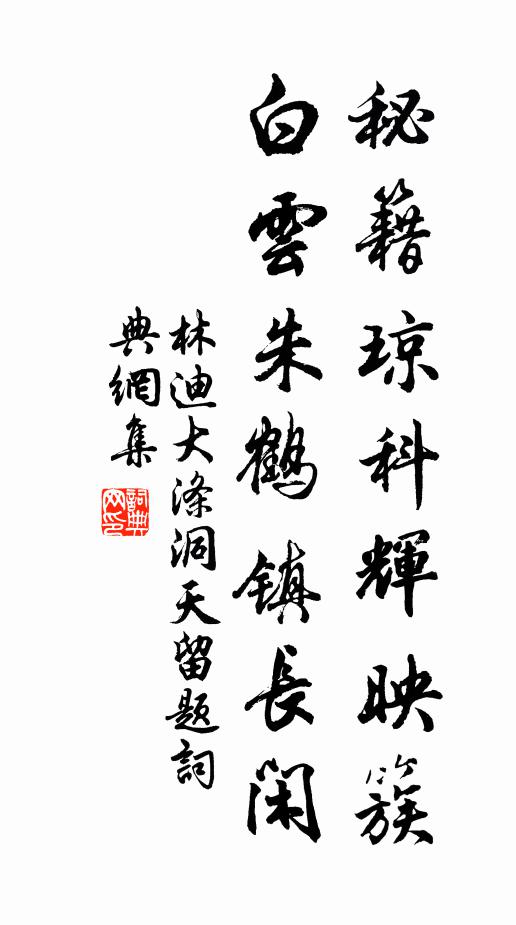 秘籍琼科輝映簇
白雲朱鶴镇長闲
林迪大涤洞天留题詞
典網集
詞典
网印